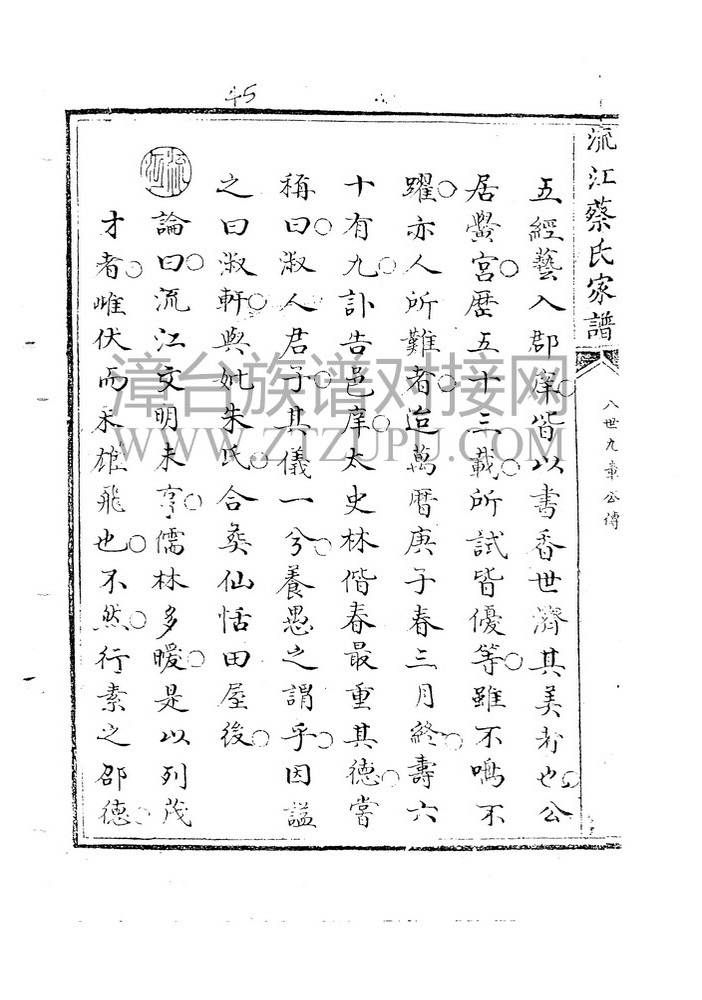 45
流江蔡氏家譜
八世九章公傳
五經藝入郡庠皆以書香世濟其美者也公
居黌宮歷五十三載所試皆優等雖不鳴不
躍亦人所難者迨萬曆庚子春三月終壽六
十有九訃告邑庠太史林偕春最重其德嘗
稱曰淑人君子其儀一兮養愚之謂乎因謚
之曰淑軒與妣朱氏合葬仙恬田屋後
論曰流江文明未亨儒林多暖是以列茂
才者雌伏而未雄飛也不然行素之邵德
漳台族谱对接网
WWW.ZTZUPU.COM